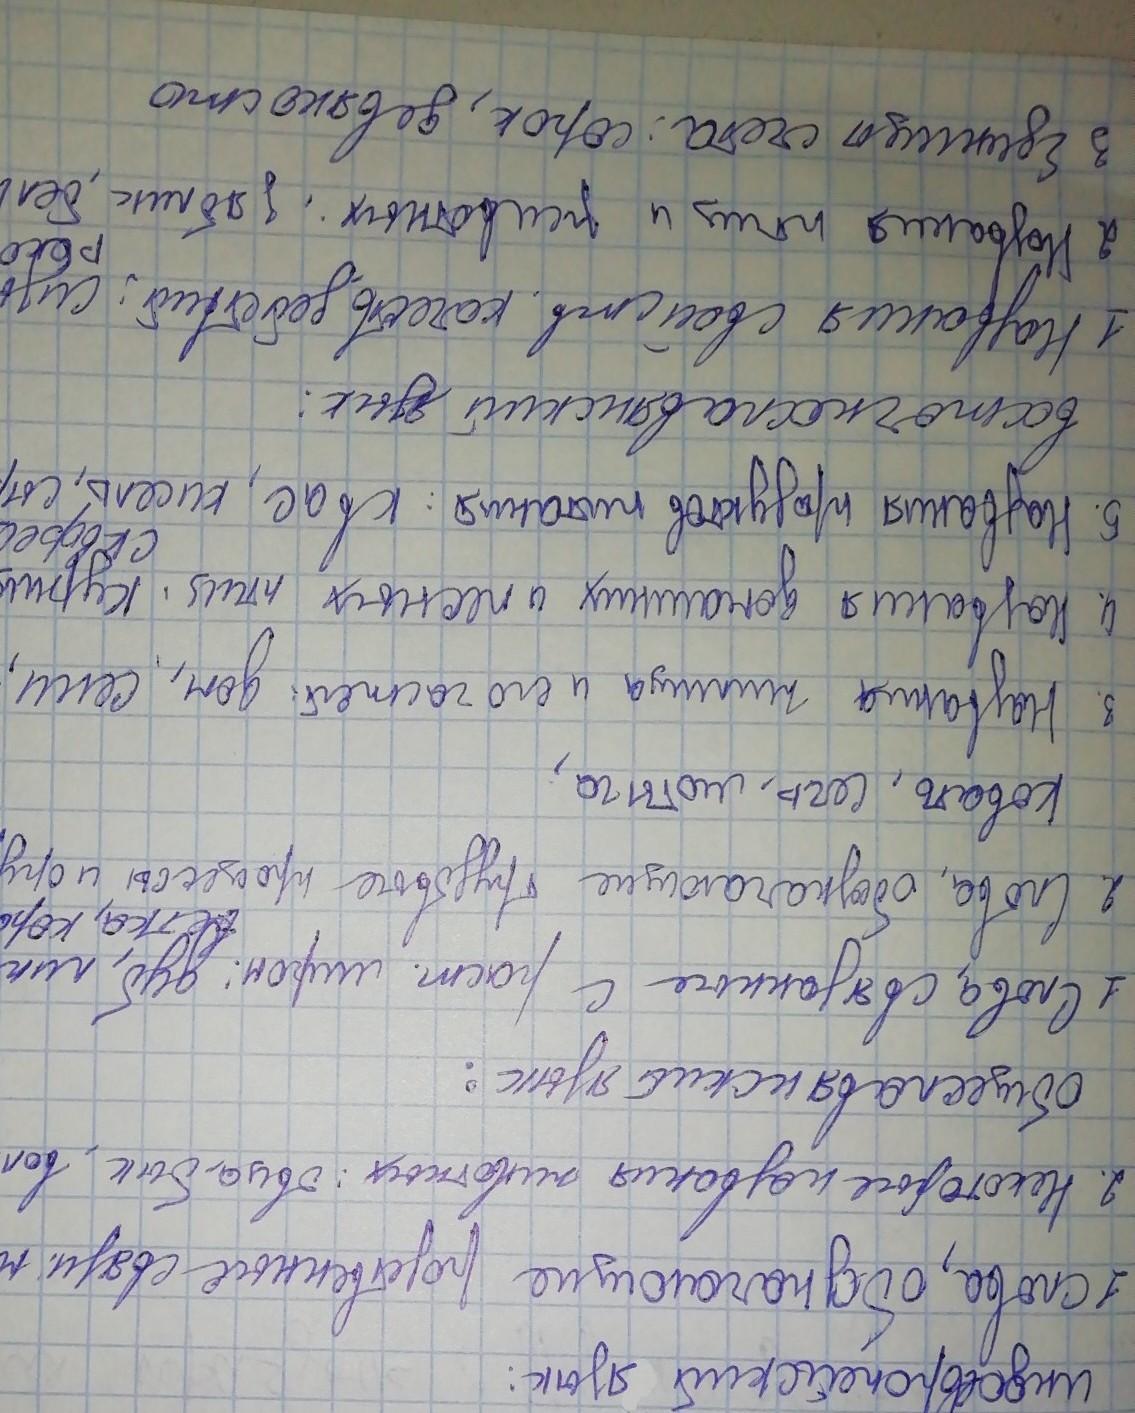 индоевропейский язык:
1 слова, обозначающие родственные связи. м
2. Некоторые названия животных: овца, бык, вол
общеславянский язык:
1 Слова, связанные с раст. миром: дуб, лип
ветка, кора
2 Слова, обозначающие трудовые процессы и ору
ковать, сечь, мотыга,
3. Названия жилища и его частей: дом, сени,
4. Названия домашних и лесных птиц: Куриц
скворец
5. Названия продуктов питания: квас, кисель, сыр
восточнеславянский язык:
1 Названия свойств. качеств, действий: сизы
2 Названия птиц и животных: зяблик, бел
3 Единицы счета: сорок, девяносто